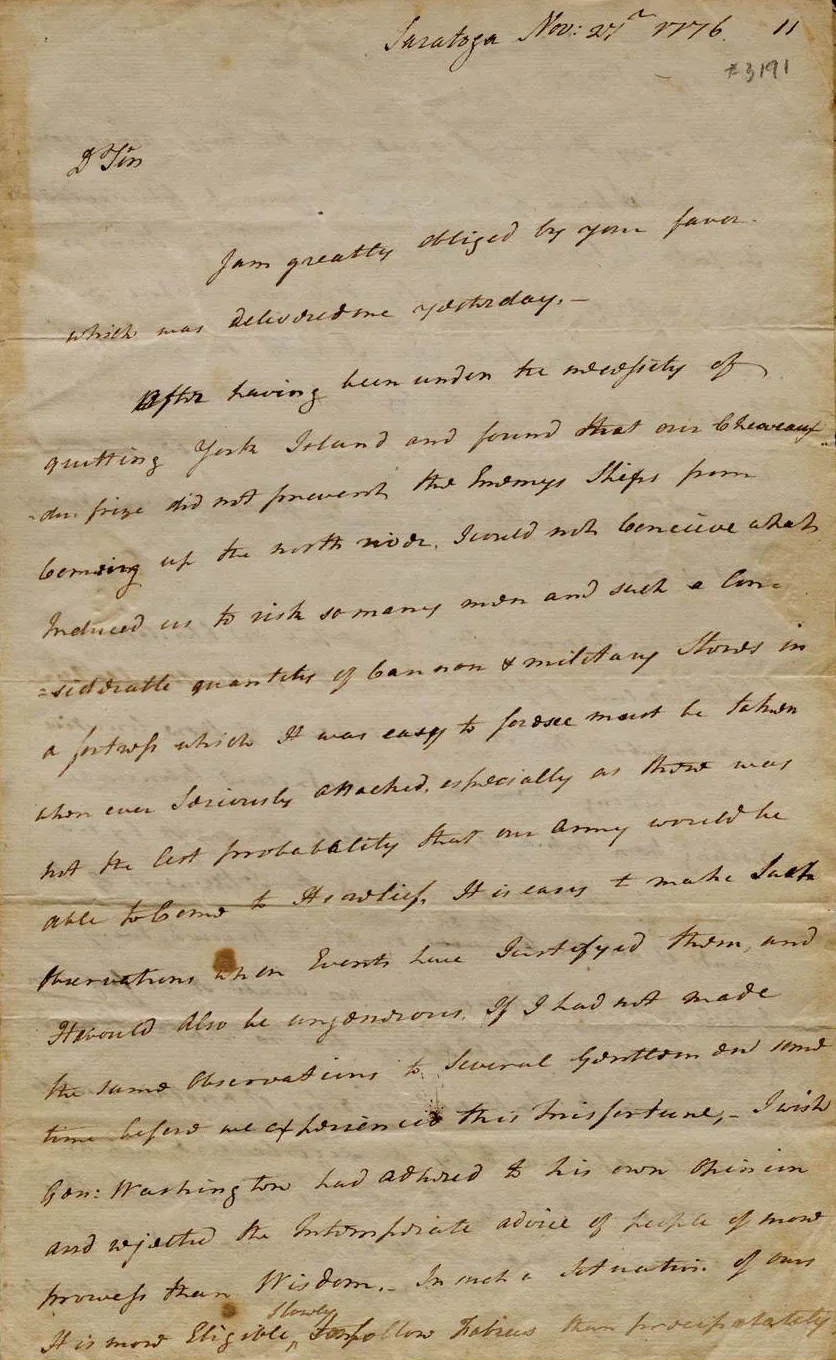 Saratoga Nov: 27th 1776. 11
#3191
Dr Sir
I am greatly obliged by your favor
which was delivered me yesterday. –
After having been under the necessity of
quitting York Island and found that our Cheveaux
-du frize did not prevent the Enemys Ships from
Comeing up the north river, I could not Conceive what
Induced us to risk so many men and such a Con-
=siderable quantity of Cannon & military Stores in
a fortress which It was easy to foresee must be taken
when ever Seriously attacked, especially as there was
not the lest probability that our Army would be
able to Come to Its relief. It is easy to make Such
Observations when Events have Justifyed them, and
It would also be ungenerous, If I had not made
the same Observations to Several Gentlemen some
time before we experienced this misfortune, – I wish
Gen: Washington had adhered to his own Opinion
and rejected the Intemperate advice of people of more
prowess than Wisdom. – In such a Situation of ours
It is more Eligible slowly to follow Fabius than precipitately